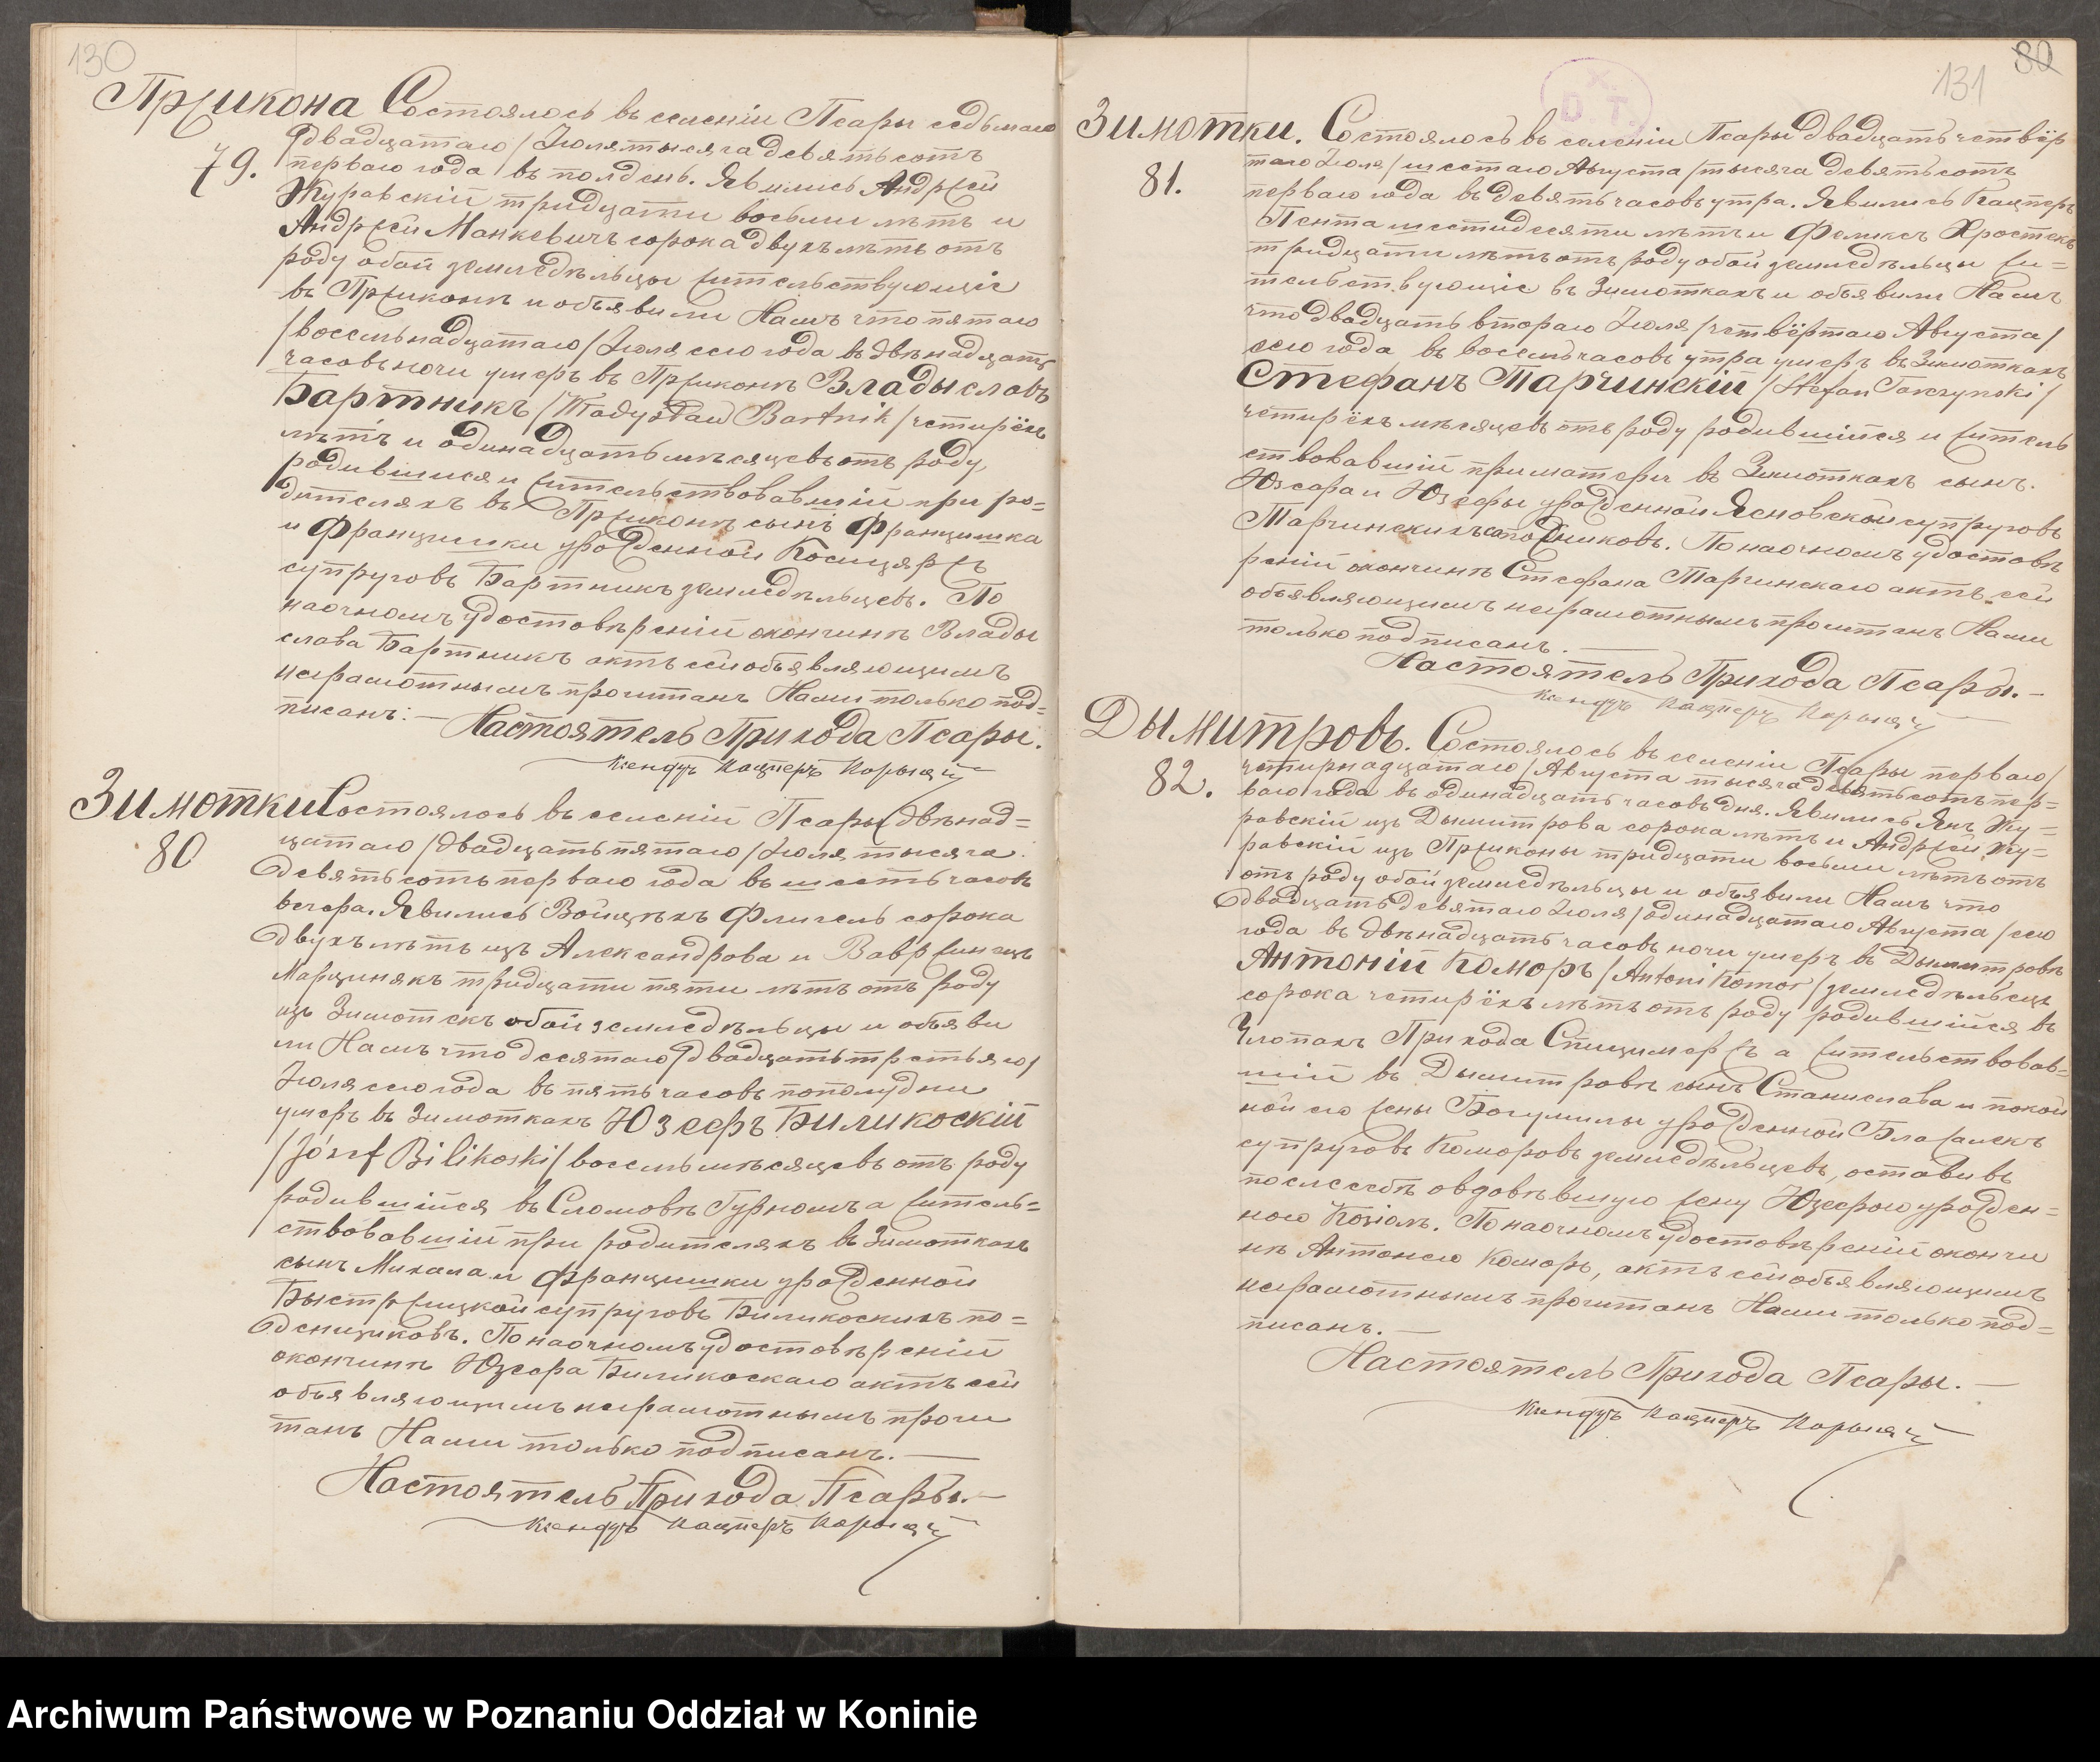 130
Пржикона Состоялось въ селеніи Псары седьмаго
79.
/двадцатаго/ Іюля тысяча девятьсотъ
перваго года въ полдень. Явились Андржей
Журавскій тридцати восьми лѣтъ и
Андржей Манкевичъ сорока двухъ лѣтъ отъ
роду обои земледѣльцы жительствующіе
въ Пржиконѣ и объявили Намъ что пятаго
/восемьнадцатаго/ Іюля сего года въ двѣнадцать
часовъ ночи умеръ въ Пржиконѣ Владыславъ
Бартникъ /Władysław Bartnik/ четырёхъ
лѣтъ и одинадцать мѣсяцевъ отъ роду,
родившійся и жительствовавшій при ро=
дителяхъ въ Пржиконѣ сынъ Францишка
и Францишки урожденной Косцяржъ
супруговъ Бартникъ земледѣльцевъ. По
наочномъ удостовѣреніи окончинѣ Влады
слава Бартникъ актъ сей объявляющимъ
неграмотнымъ прочитанъ Нами только под=
писанъ. — Настоятель Прихода Псары.
Ксендзъ Кацперъ
Зимотки Состоялось въ селеніи Псары двѣнад=
80
цатаго /двадцать пятаго/ Іюля тысяча
девятьсотъ перваго года въ шесть часовъ
вечера. Явились Войцѣхъ Флигель сорока
двухъ лѣтъ изъ Александрова и Вавржинецъ
Марцинякъ тридцати пяти лѣтъ отъ роду
изъ Зимотекъ обои земледѣльцы и объяви
ли Намъ что десятаго /двадцать третьяго/
Іюля сего года въ пять часовъ пополудни
умеръ въ Зимоткахъ Юзефъ Биликоскій
/Józef Bilikoski/ восемь мѣсяцевъ отъ роду
родившійся въ Сломовѣ Гурномъ а житель=
ствовавшій при родителяхъ въ Зимоткахъ
сынъ Михала и Францишки урожденной
Быстржицкой супруговъ Биликоскихъ по=
денщиковъ. По наочномъ удостовѣреніи
окончинѣ Юзефа Биликоскаго актъ сей
объявляющимъ неграмотнымъ прочи
танъ Нами только подписанъ. —
Настоятель Прихода Псары. —
Ксендзъ Кацперъ
80
131
D. T.
Зимотки. Состоялось въ селеніи Псары двадцать четвёр
81.
таго Іюля /шестаго Августа/ тысяча девятьсотъ
перваго года въ девять часовъ утра. Явились Кацперъ
Пента шестидесяти лѣтъ и Феликсъ Хростекъ
тридцати лѣтъ отъ роду обои земледѣльцы жи=
тельствующіе въ Зимоткахъ и объявили Намъ
что двадцать втораго Іюля /четвёртаго Августа/
сего года въ восемь часовъ утра умеръ въ Зимоткахъ
Стефанъ Тарчинскій /Stefan Tarczynski/
четырёхъ мѣсяцевъ отъ роду родившійся и житель
ствовавшій при матери въ Зимоткахъ сынъ.
Юзефа и Юзефы урожденной Ясновской супруговъ
Тарчинскихъ сапожниковъ. По наочномъ удостовѣ
реніи окончинѣ Стефана Тарчинскаго актъ сей
объявляющимъ неграмотнымъ прочитанъ Нами
только подписанъ. —
Настоятель Прихода Псары. —
Ксендзъ Кацперъ
Дымитровъ. Состоялось въ селеніи Псары перваго/
82.
четырнадцатаго/ Августа тысяча девятьсотъ пер=
ваго года въ одинадцать часовъ дня. Явились Янъ Жу=
равскій изъ Дымитрова сорока лѣтъ и Андржей Жу=
равскій изъ Пржиконы тридцати восьми лѣтъ отъ
отъ роду обои земледѣльцы и объявили Намъ что
двадцать девятаго Іюля /одинадцатаго Августа/ сего
года въ двѣнадцать часовъ ночи умеръ въ Дымитровѣ
Антоній Коморъ /Antoni Komor/ земледѣлецъ
сорока четырёхъ лѣтъ отъ роду родившійся въ
Члопахъ Прихода Спицимержъ а жительствовав=
шій въ Дымитровѣ сынъ Станислава и покой
ной его жены Богумилы урожденной Блажалекъ
супруговъ Коморовъ земледѣльцевъ, оставивъ
послѣ себѣ овдовѣвшую жену Юзефою урожден=
ною Козіолъ. По наочномъ удостовѣреніи окончи
нѣ Антонего Коморъ, актъ сей объявляющимъ
неграмотнымъ прочитанъ Нами только под=
писанъ. —
Настоятель Прихода Псары. —
Ксендзъ Кацперъ
Archiwum Państwowe w Poznaniu Oddział w Koninie